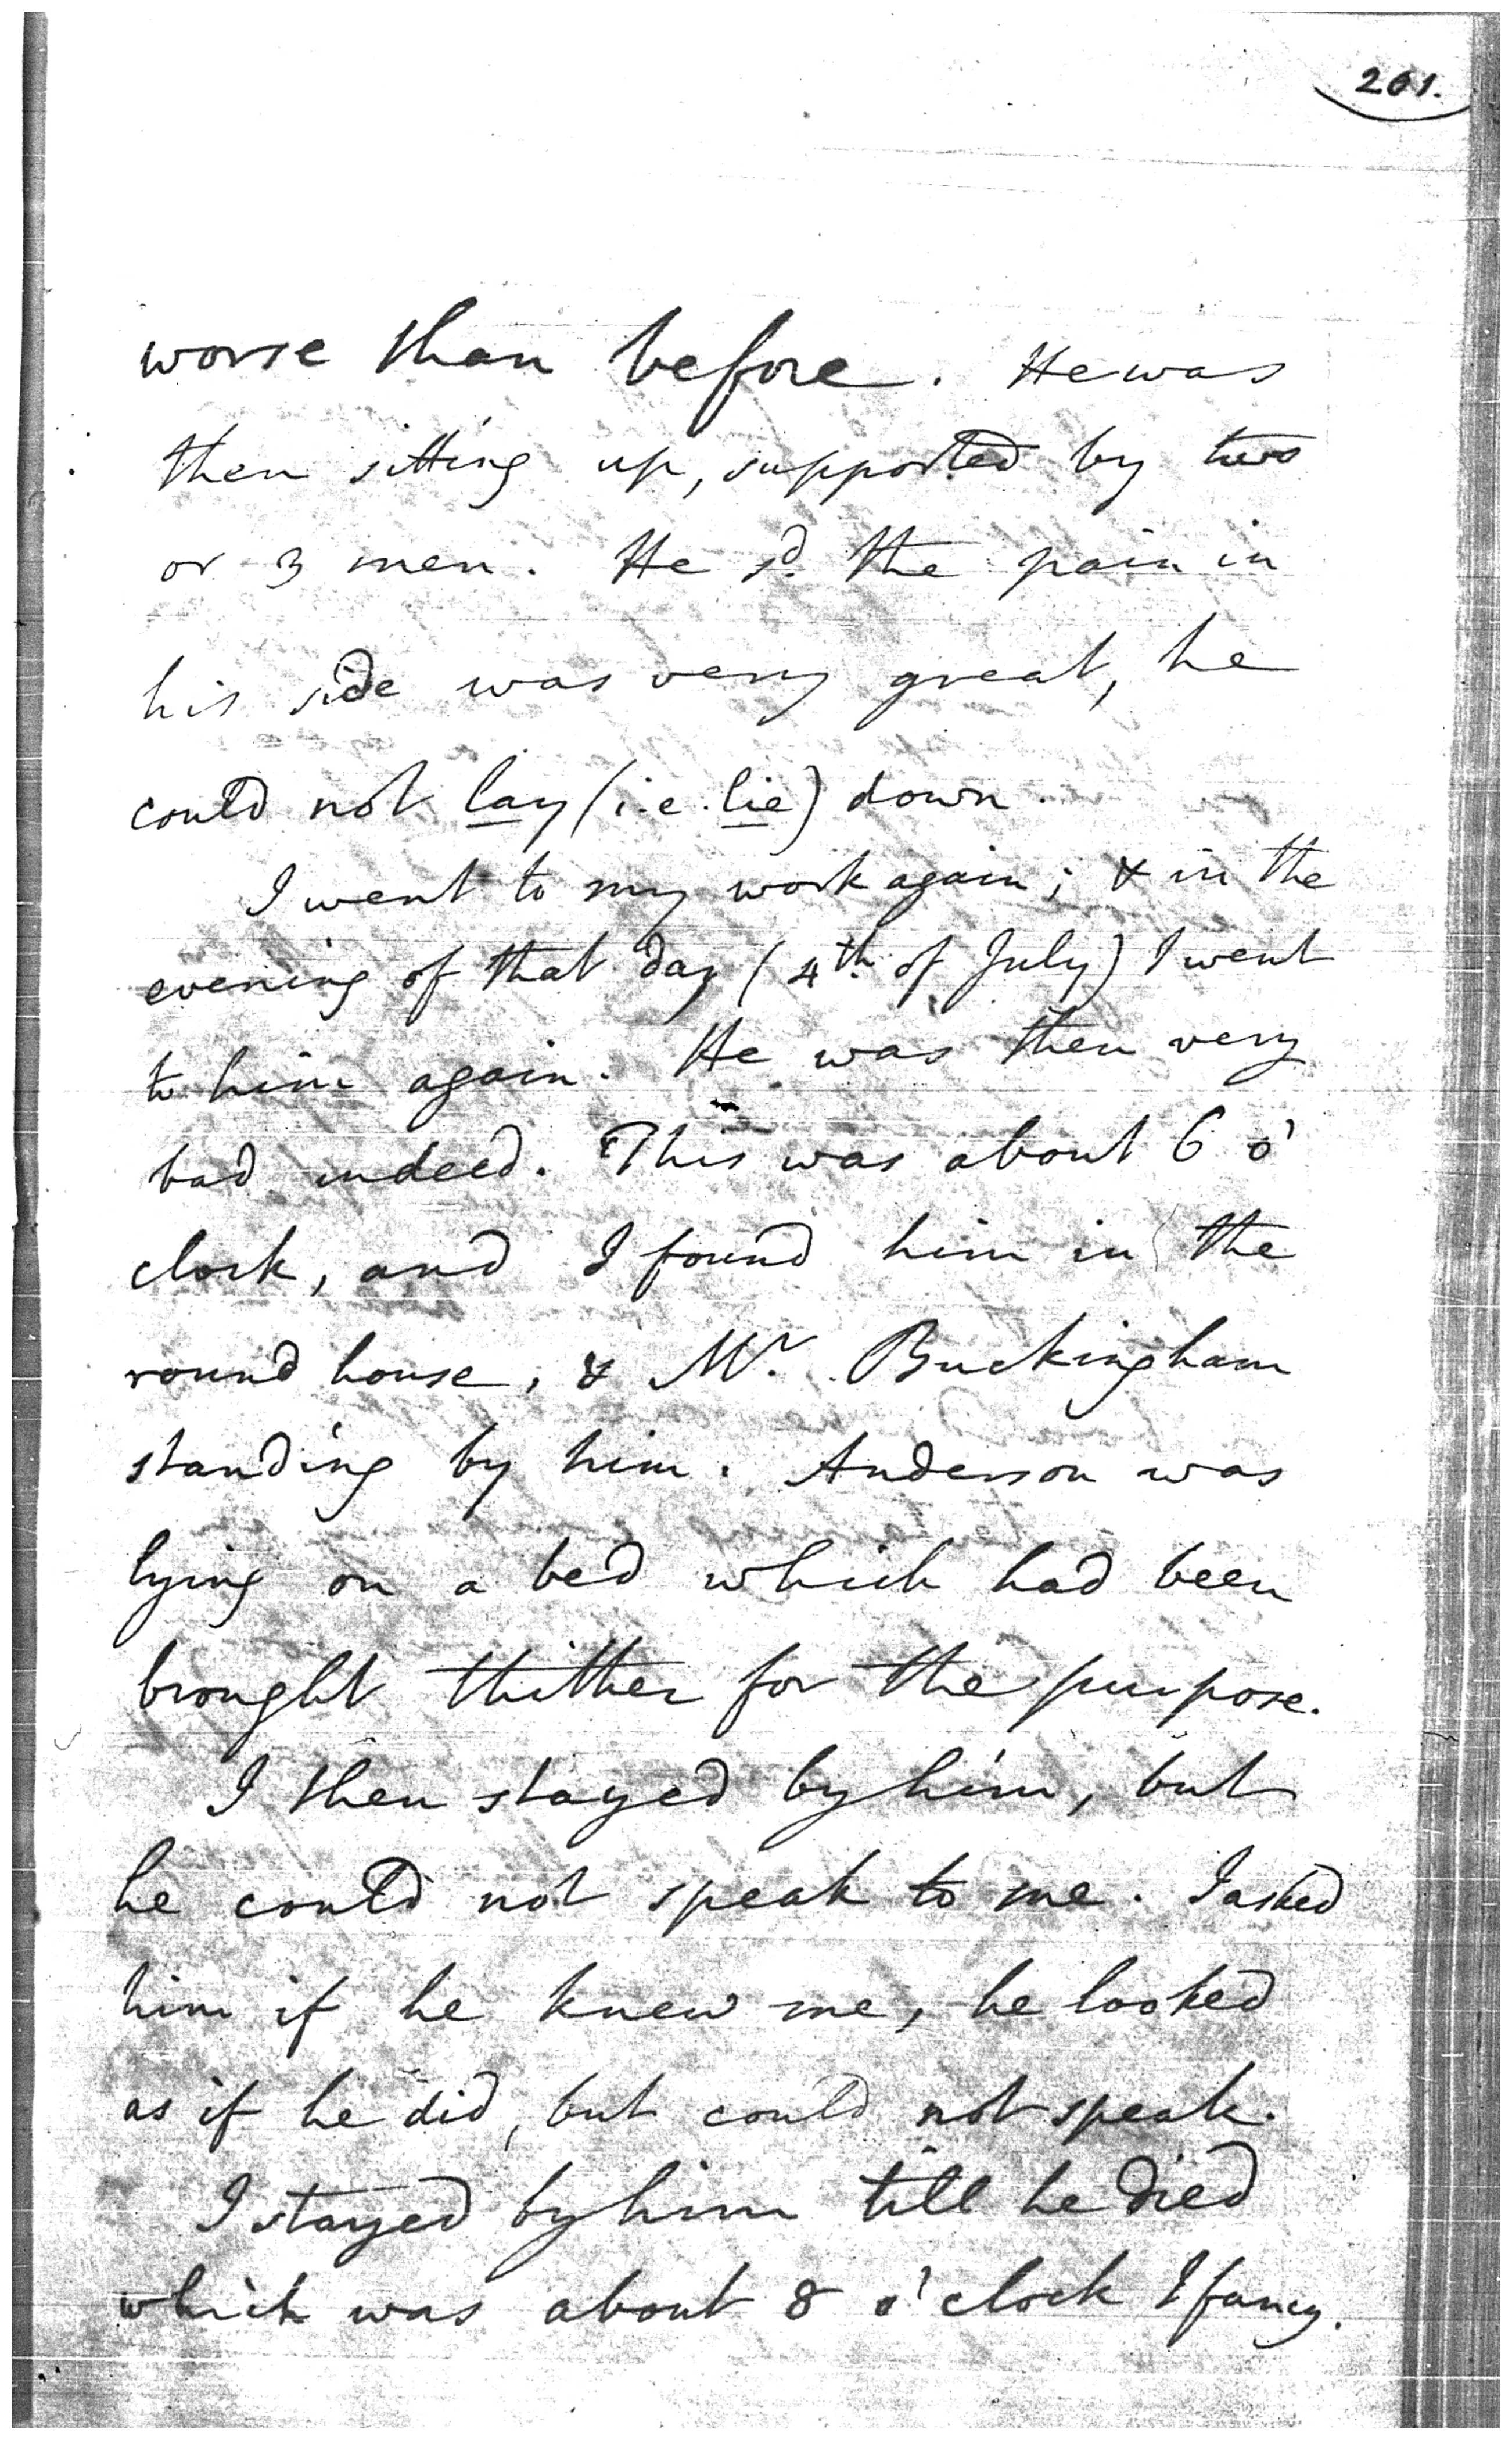 201.
worse than before. He was
then sitting up, supported by two
or 3 men. He sd. the pain in
his side was very great, he
could not lay (i.e. lie) down.
I went to my work again; & in the
evening of that day (4th of July) I went
to him again. He was then very
bad indeed. This was about 6 o'
clock, and I found him in the
round house, & Mr. Buckingham
standing by him. Anderson was
lying on a bed which had been
brought thither for the purpose.
I then stayed by him, but
he could not speak to me. I asked
him if he knew me, he looked
as if he did, but could not speak.
I stayed by him till he died
which was about 8 o'clock I fancy.